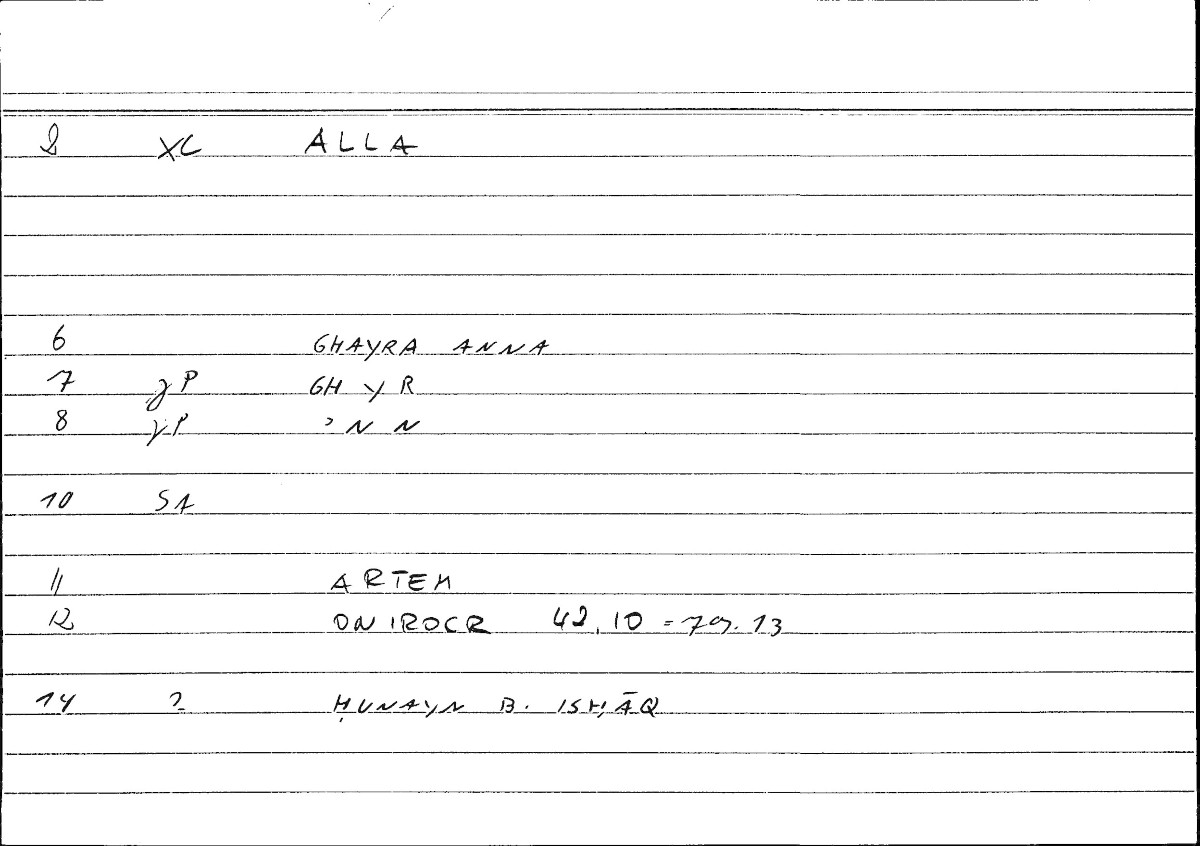 2 XC ALLA
6 GHAYRA ANNA
7 γP GH Y R
8 γP ʾ N N
10 SA
11 ARTEM
12 ONIROCR 42.10 = 79.13
14 2 ḤUNAYN B. ISḤĀQ